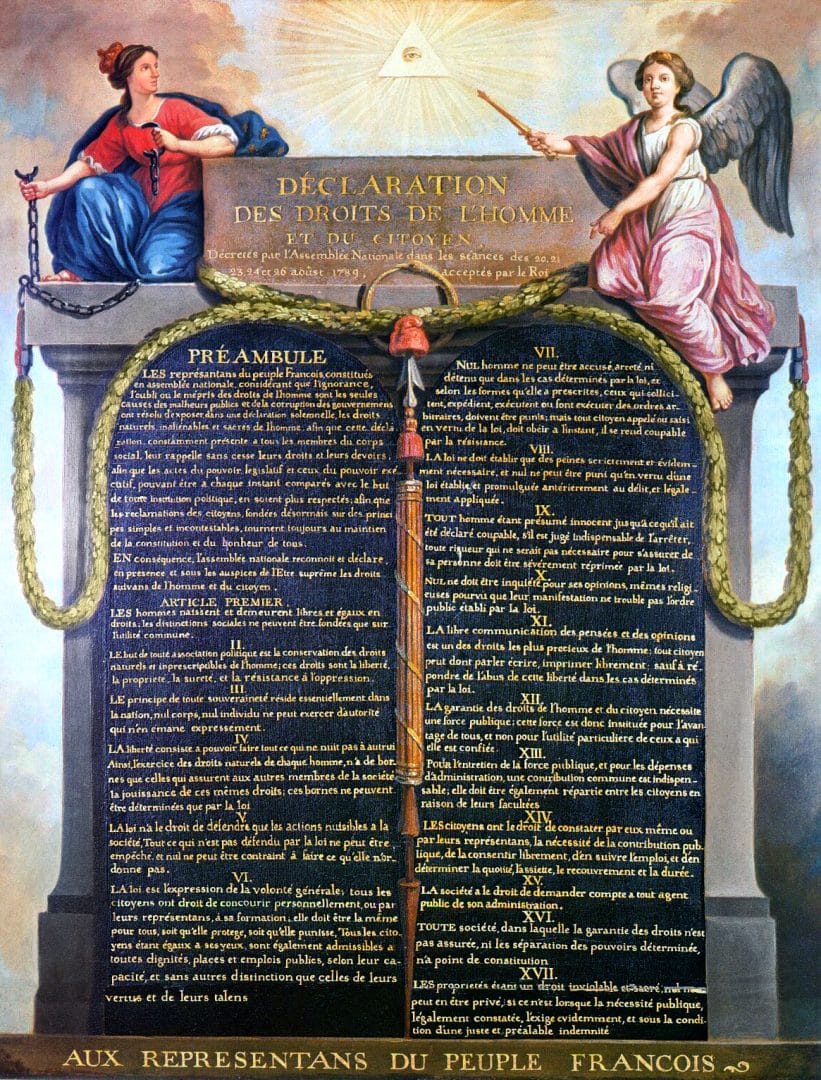 DÉCLARATION
DES DROITS DE L'HOMME
ET DU CITOYEN,
Décretés par l'Assemblée Nationale dans les séances des 20, 21
23, 24 et 26 août 1789, acceptés par le Roi
PRÉAMBULE
LES représantans du peuple François, constitués
en assemblée nationale, considérant que l'ignorance,
l'oubli ou le mépris des droits de l'homme sont les seules
causes des malheurs publics et de la corruption des gouvernemens
ont résolu d'exposer dans une déclaration solemnelle, les droits
naturels, inaliénables et sacrés de l'homme; afin que cette décla
ration, constamment présente a tous les membres du corps
social, leur rappelle sans cesse leurs droits et leurs devoirs,
afin que les actes du pouvoir legislatif et ceux du pouvoir exé
cutif, pouvant être a chaque instant comparés avec le but
de toute institution politique, en soient plus respectés; afin que
les reclamations des citoyens, fondées désormais sur des princi
pes simples et incontestables, tournent toujours au maintien
de la constitution et du bonheur de tous.
EN conséquence, l'assemblée nationale reconnoit et déclare,
en presence et sous les auspices de l'Etre suprême les droits
suivans de l'homme et du citoyen.
ARTICLE PREMIER.
LES hommes naissent et demeurent libres et égaux en
droits; les distinctions sociales ne peuvent être fondées que sur
l'utilité commune.
II.
LE but de toute association politique est la conservation des droits
naturels et inprescriptibles de l'homme; ces droits sont la liberté,
la propriété, la sureté, et la résistance à l'oppression.
III.
LE principe de toute souveraineté réside essentiellement dans
la nation, nul corps, nul individu ne peut exercer d'autorité
qui n'en émane expressement.
IV.
LA liberté consiste a pouvoir faire tout ce qui ne nuit pas à autrui
Ainsi, l'exercice des droits naturels de chaque homme, n'a de bor-
nes que celles qui assurent aux autres membres de la société
la jouissance de ces mêmes droits; ces bornes ne peuvent
être déterminées que par la loi
V.
LA loi n'a le droit de défendre que les actions nuisibles a la
société. Tout ce qui n'est pas défendu par la loi ne peut être
empêché, et nul ne peut être contraint à faire ce qu'elle n'or-
donne pas.
VI.
LA loi est l'expression de la volonté générale; tous les
citoyens ont droit de concourir personnellement, ou par
leurs représentans, à sa formation; elle doit être la même
pour tous, soit qu'elle protege, soit qu'elle punisse, Tous les cito
yens étant égaux a ses yeux, sont également admissibles a
toutes dignités, places et emplois publics, selon leur ca-
pacité, et sans autres distinction que celles de leurs
vertus et de leurs talens
VII.
NUL homme ne peut être accusé, arreté, ni
détenu que dans les cas déterminés par la loi, et
selon les formes qu'elle a prescrites, ceux qui sollici-
tent, expédient, exécutent ou font exécuter des ordres ar-
bitraires, doivent être punis; mais tout citoyen appelé ou saisi
en vertu de la loi, doit obéir a l'instant, il se rend coupable
par la résistance.
VIII.
LA loi ne doit établir que des peines strictement et évidem-
ment nécessaire, et nul ne peut être puni qu'en vertu d'une
loi établie et promulguée antérierement au délit, et légale-
ment appliquée.
IX.
TOUT homme étant présumé innocent jusqu'a ce qu'il ait
été déclaré coupable, s'il est jugé indispensable de l'arrêter,
toute rigueur qui ne serait pas nécessaire pour s'assurer de
sa personne doit être sévèrement réprimée par la loi.
X.
NUL ne doit être inquiété pour ses opinions, mêmes religi-
euses pourvu que leur manifestation ne trouble pas l'ordre
public établi par la loi.
XI.
LA libre communication des pensées et des opinions
est un des droits les plus precieux de l'homme; tout citoyen
peut dont parler écrire, imprimer librement; sauf à ré-
pondre de l'abus de cette liberté dans les cas déterminés
par la loi.
XII.
LA garantie des droits de l'homme et du citoyen nécessite
une force publique; cette force est donc instituée pour l'avan-
tage de tous, et non pour l'utilité particuliere de ceux a qui
elle est confiée.
XIII.
POUR l'entretien de la force publique, et pour les dépenses
d'administration, une contribution commune est indispen-
sable; elle doit être également répartie entre les citoyens en
raison de leurs facultées
XIV.
LES citoyens ont le droit de constater par eux même ou
par leurs représentans, la nécessité de la contribution pub-
lique, de la consentir librement, d'en suivre l'emploi, et d'en
déterminer la quotité, l'assiette, le recouvrement et la durée.
XV.
LA société a le droit de demander compte a tout agent
public de son administration.
XVI.
TOUTE société, dans laquelle la garantie des droits n'est
pas assurée, ni les séparation des pouvoirs déterminée,
n'a point de constitution
XVII.
LES proprietés étans un droit inviolable et sacré, nul ne
peut en être privé, si ce n'est lorsque la nécessité publique,
légalement constatée, l'exige evidemment, et sous la condi
tion d'une juste et préalable indemnité
AUX REPRESENTANS DU PEUPLE FRANCOIS